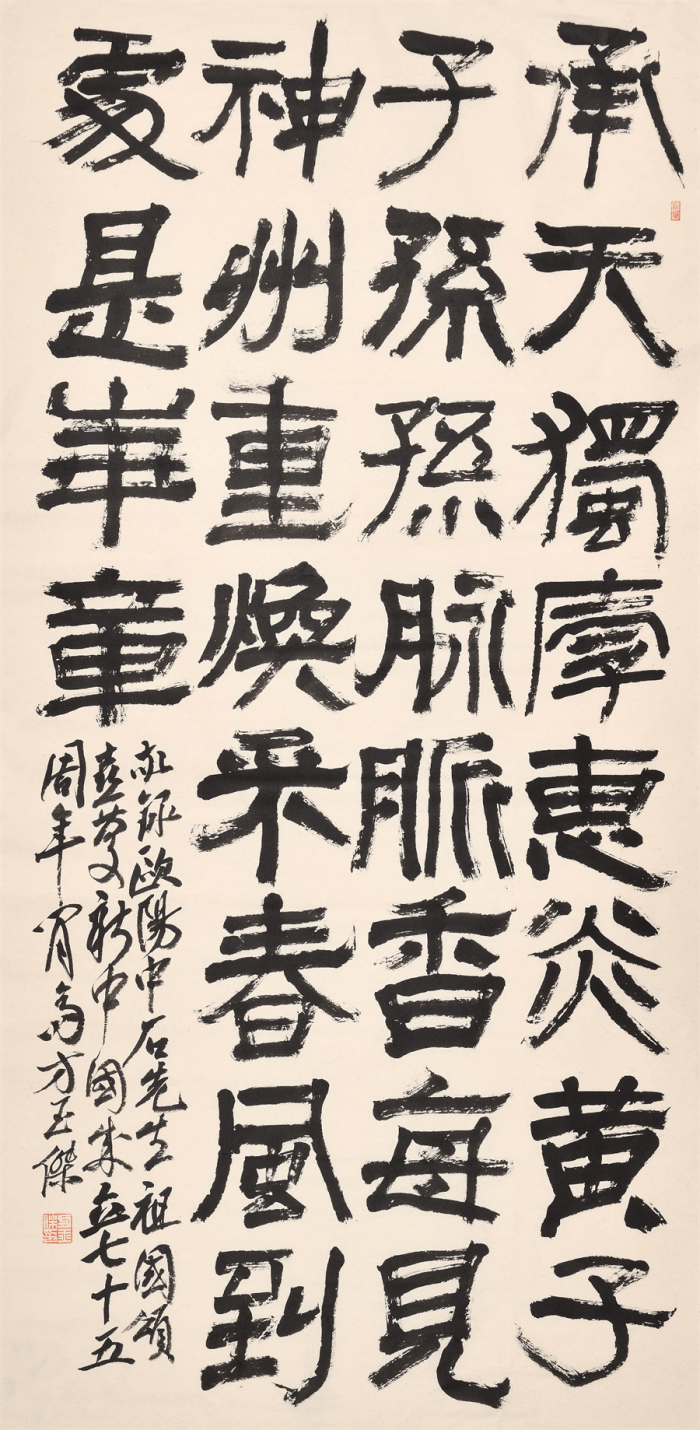 承天獨厚惠炎黄子
子孫孫脉脈香每見
神州重煥采春風到
處是華章
錄歐陽中石先生祖國頌
喜慶新中國成立七十五
周年方玉傑